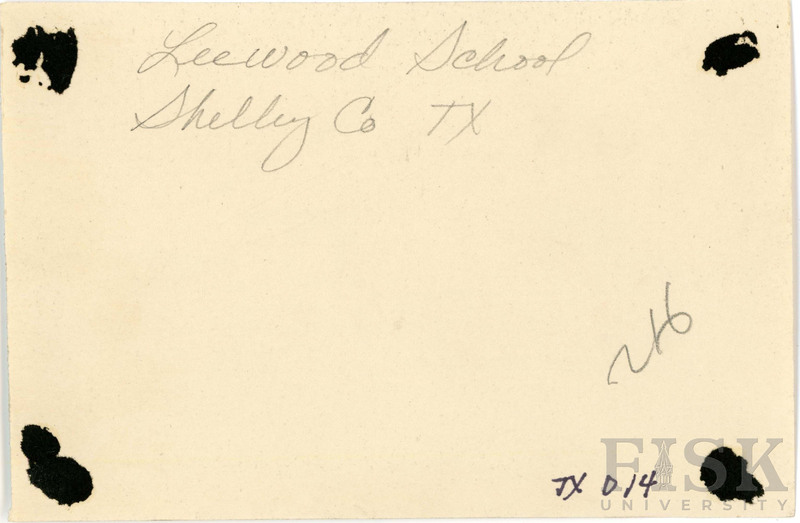 Leewood School
Shelby Co TX
246
TX D14
FISK
UNIVERSITY